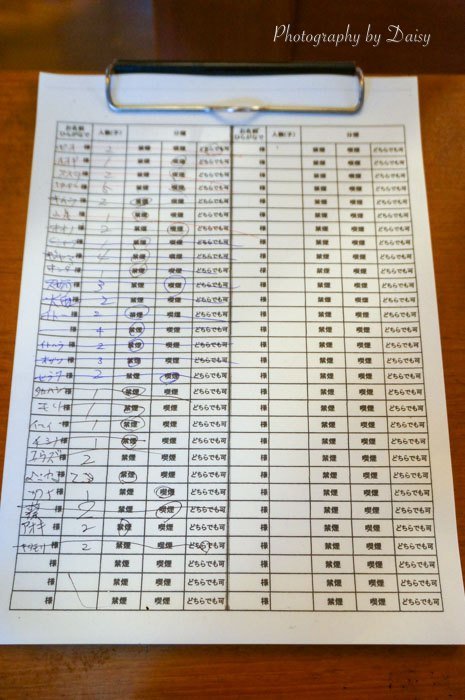 Photography by Daisy
お名前 ひらがなで 人数(子) 分煙 お名前 ひらがなで 人数(子) 分煙
様 2 禁煙 喫煙 どちらでも可 様 禁煙 喫煙 どちらでも可
様 1 禁煙 喫煙 どちらでも可 様 禁煙 喫煙 どちらでも可
様 2 禁煙 喫煙 どちらでも可 様 禁煙 喫煙 どちらでも可
様 禁煙 喫煙 どちらでも可 様 禁煙 喫煙 どちらでも可
様 2 禁煙 喫煙 どちらでも可 様 禁煙 喫煙 どちらでも可
様 1 禁煙 喫煙 どちらでも可 様 禁煙 喫煙 どちらでも可
様 2 禁煙 喫煙 どちらでも可 様 禁煙 喫煙 どちらでも可
様 1 禁煙 喫煙 どちらでも可 様 禁煙 喫煙 どちらでも可
様 4 禁煙 喫煙 どちらでも可 様 禁煙 喫煙 どちらでも可
様 1 禁煙 喫煙 どちらでも可 様 禁煙 喫煙 どちらでも可
様 3 禁煙 喫煙 どちらでも可 様 禁煙 喫煙 どちらでも可
様 2 禁煙 喫煙 どちらでも可 様 禁煙 喫煙 どちらでも可
イトー 様 2 禁煙 喫煙 どちらでも可 様 禁煙 喫煙 どちらでも可
様 4 禁煙 喫煙 どちらでも可 様 禁煙 喫煙 どちらでも可
イトハラ 様 2 禁煙 喫煙 どちらでも可 様 禁煙 喫煙 どちらでも可
様 3 禁煙 喫煙 どちらでも可 様 禁煙 喫煙 どちらでも可
様 2 禁煙 喫煙 どちらでも可 様 禁煙 喫煙 どちらでも可
タカハシ 様 1 禁煙 喫煙 どちらでも可 様 禁煙 喫煙 どちらでも可
様 1 禁煙 喫煙 どちらでも可 様 禁煙 喫煙 どちらでも可
様 1 禁煙 喫煙 どちらでも可 様 禁煙 喫煙 どちらでも可
様 1 禁煙 喫煙 どちらでも可 様 禁煙 喫煙 どちらでも可
様 2 禁煙 喫煙 どちらでも可 様 禁煙 喫煙 どちらでも可
様 禁煙 喫煙 どちらでも可 様 禁煙 喫煙 どちらでも可
様 1 禁煙 喫煙 どちらでも可 様 禁煙 喫煙 どちらでも可
様 2 禁煙 喫煙 どちらでも可 様 禁煙 喫煙 どちらでも可
アオキ 様 2 禁煙 喫煙 どちらでも可 様 禁煙 喫煙 どちらでも可
様 2 禁煙 喫煙 どちらでも可 様 禁煙 喫煙 どちらでも可
様 禁煙 喫煙 どちらでも可 様 禁煙 喫煙 どちらでも可
様 禁煙 喫煙 どちらでも可 様 禁煙 喫煙 どちらでも可
様 禁煙 喫煙 どちらでも可 様 禁煙 喫煙 どちらでも可